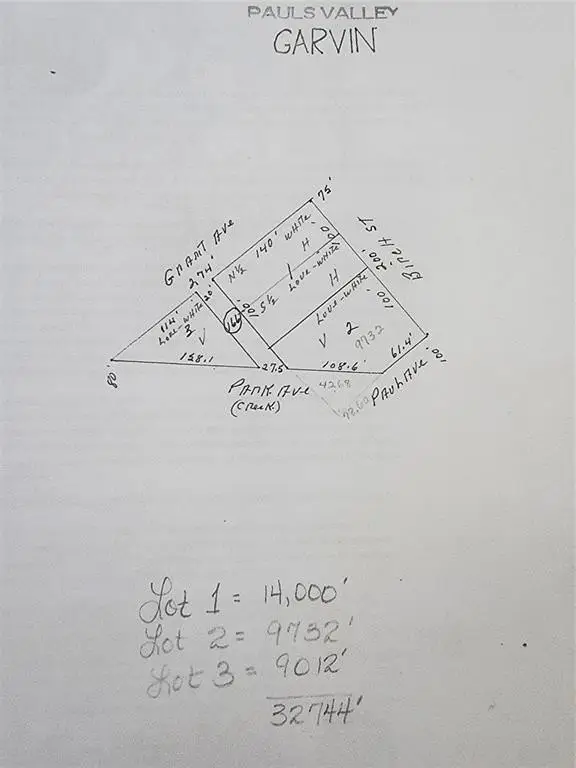 PAULS VALLEY
GARVIN
75'
GRANT AVE
274'
140' WHITE
N½
H
100
BIRCH ST
200'
20'
S½
1
LOVE-WHITE
H
114'
LOVE-WHITE
3
V
166
100
LOVE-WHITE
100
V 2
9732
158.1
80'
27.5
108.6'
61.4'
100'
PARK AVE
(CREEK)
4268
78.60
PAUL AVE
Lot 1 = 14,000'
Lot 2 = 9732'
Lot 3 = 9012'
32744'